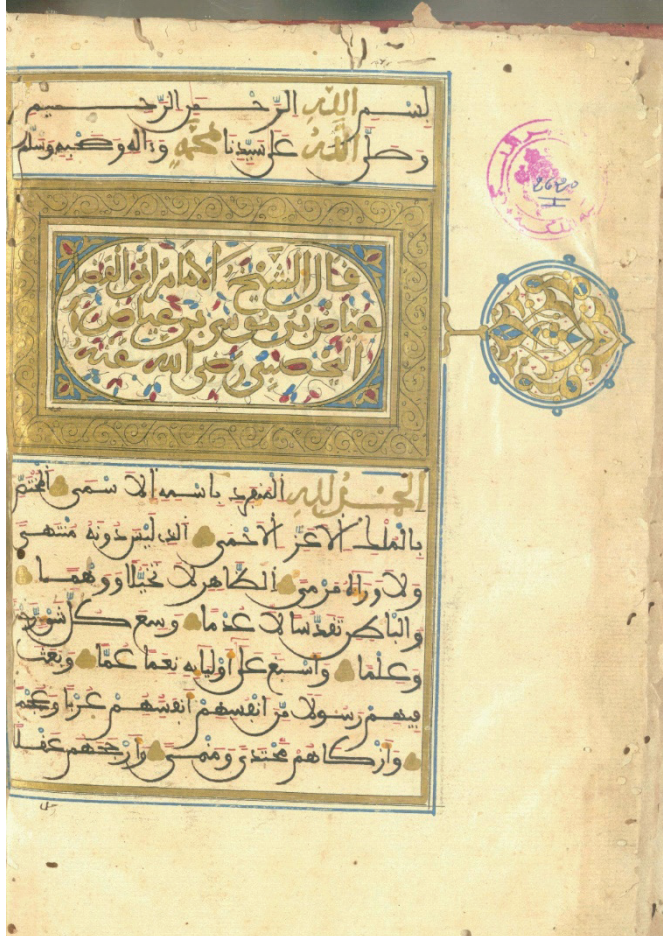 بسم الله الرحمن الرحيم
وصلى الله على سيدنا محمد وءاله وصحبه وسلم
قال الشيخ الامام ابو الفضل
عياض بن موسى بن عياض
اليحصبي رضي الله عنه
الحمد لله المنفرد باسمه الاسمى المختص
بالملك الاعز الاحمى الذي ليس دونه منتهى
ولا وراءه مرمى الظاهر لا تخيلا ووهما
والباطن تقدسا لا عدما وسع كل شيء رحمة
وعلما واسبغ على اوليايه نعما عما وبعث
فيهم رسولا من انفسهم انفسهم عربا وعجما
وازكاهم محتدا ومنمى وارجحهم عقلا